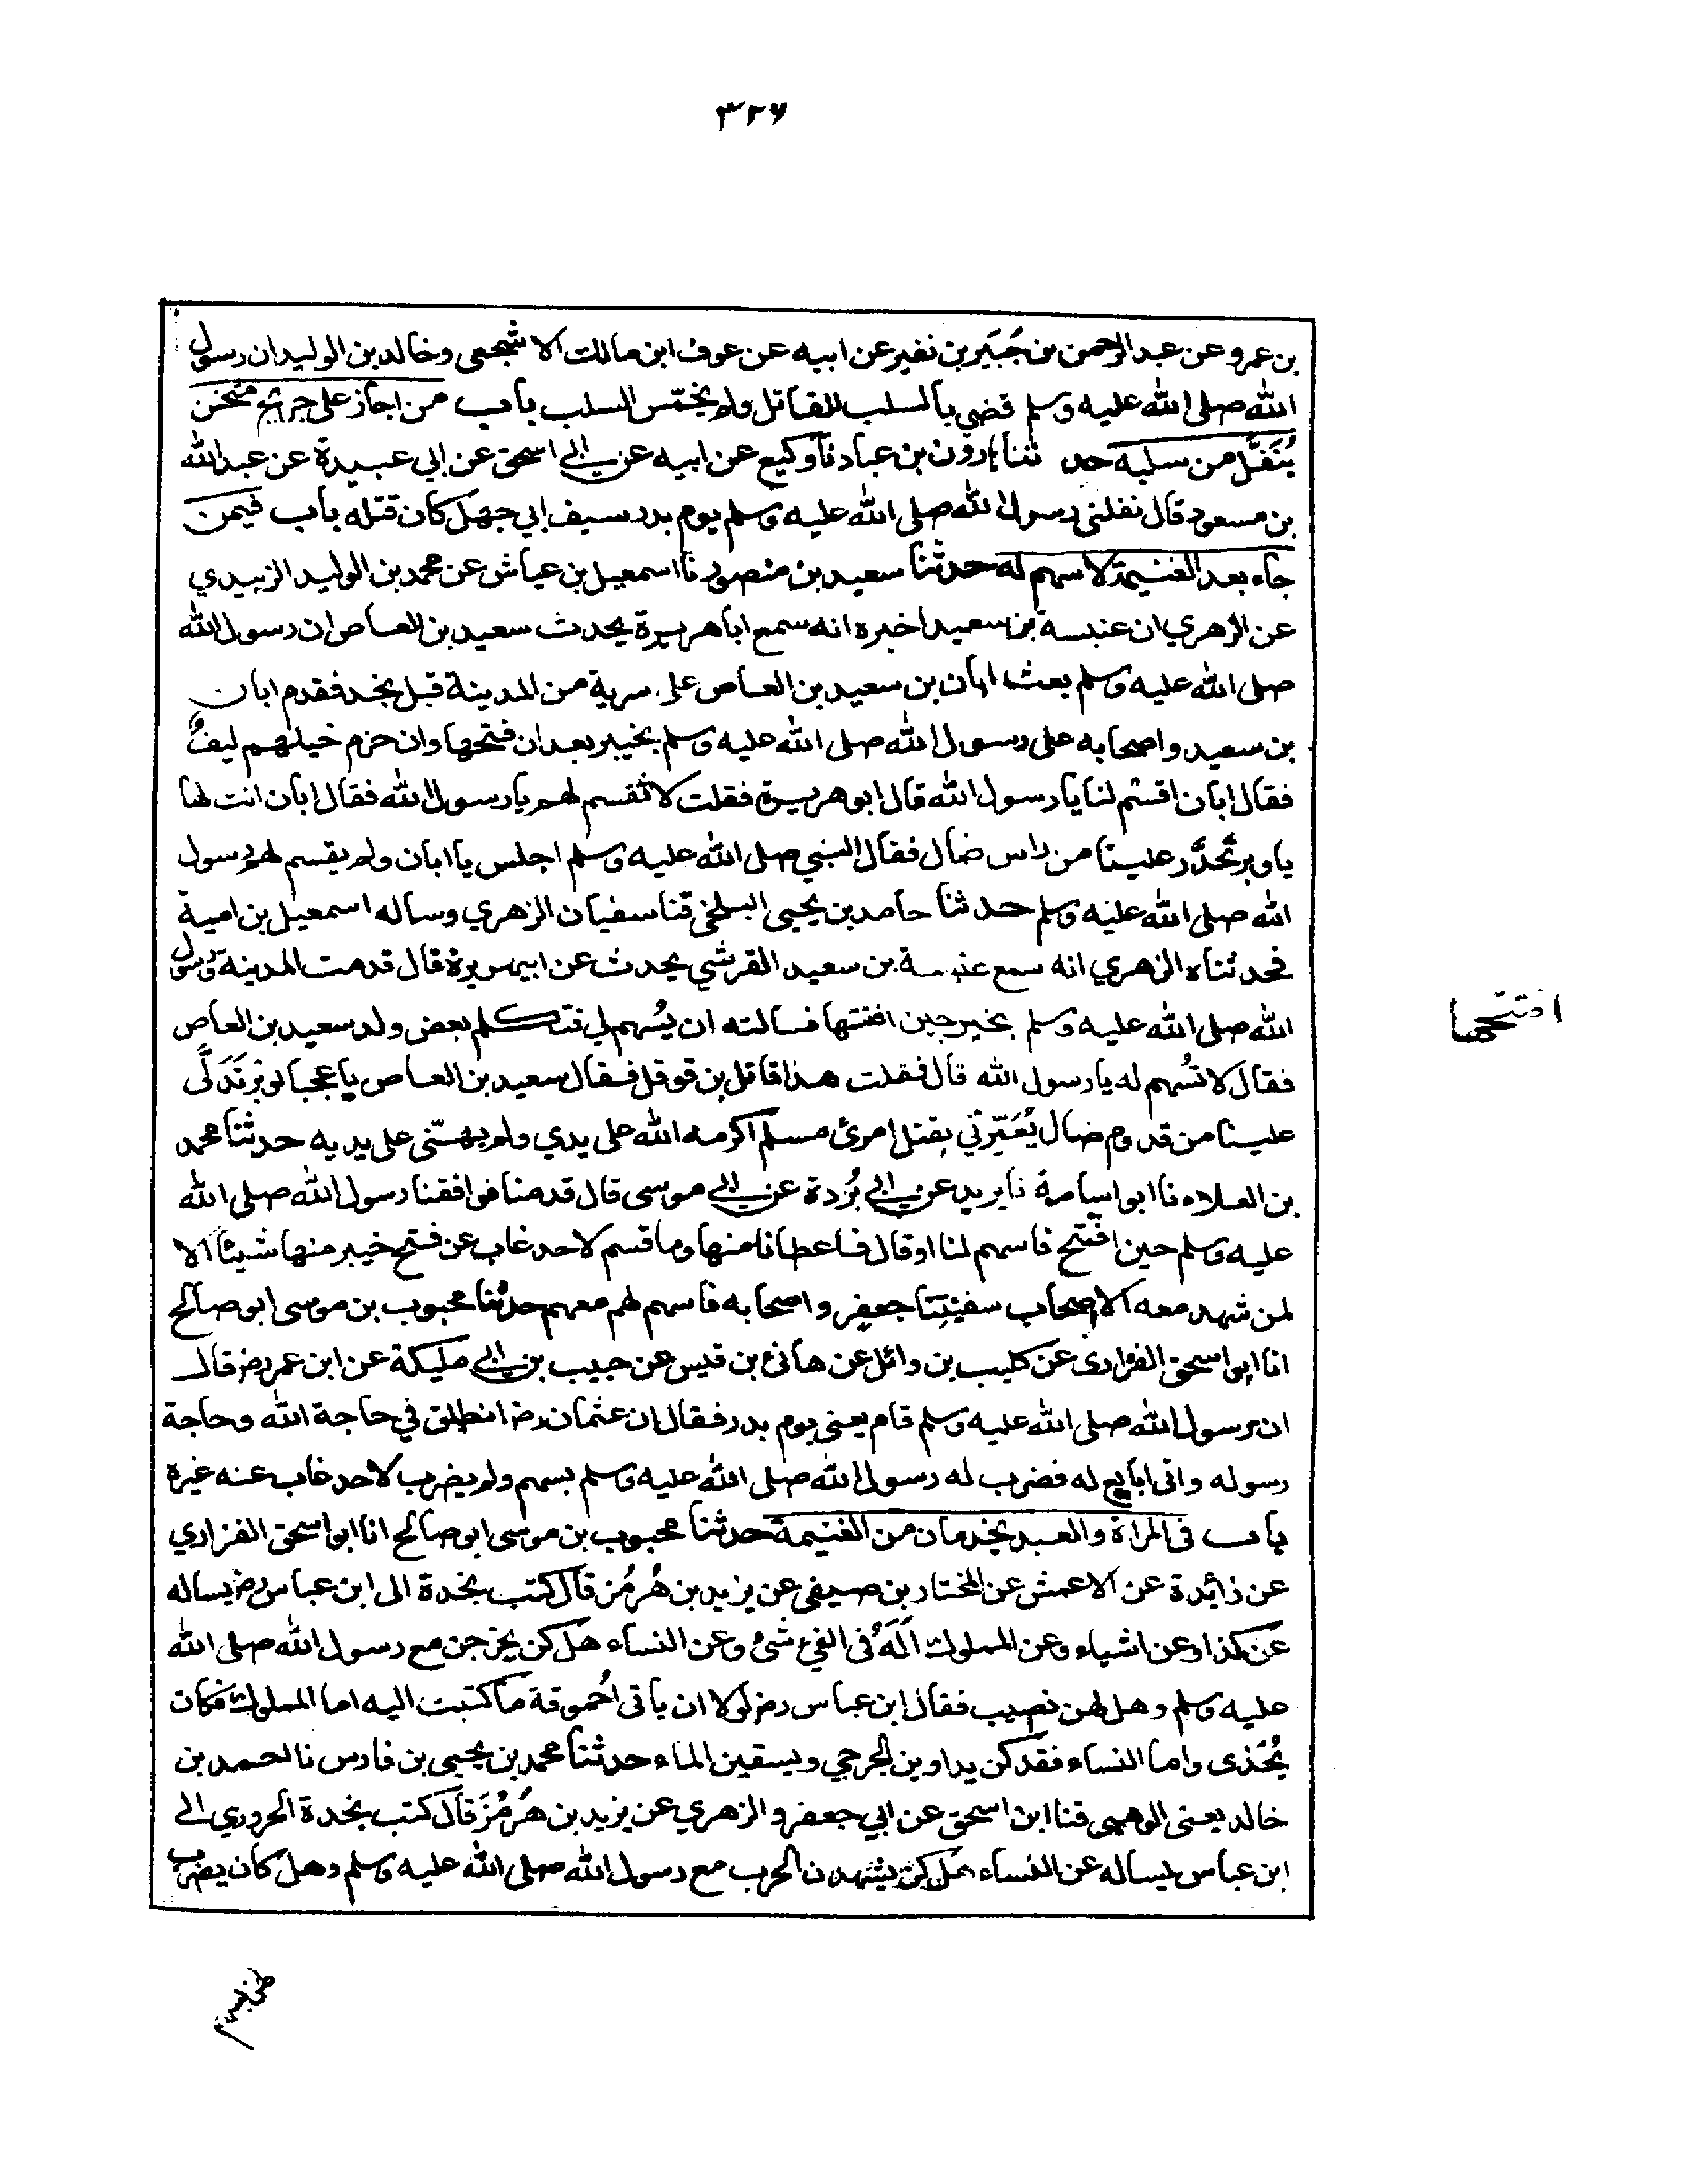 ٣٢٦
بن عمرو عن عبد الرحمن بن جُبَير بن نفير عن ابيه عن عوف ابن مالك الاشجعى وخالد بن الوليد ان رسول
الله صلى الله عليه وسلم قضي بالسلب للقاتل ولم يخمّس السلب باب من اجاز على جريح مثخن
يُنَفَّل من سلبه حد ثنا هارون بن عباد نا وكيع عن ابيه عن ابي اسحق عن ابي عبيدة عن عبد الله
بن مسعود قال نفلنى رسول الله صلى الله عليه وسلم يوم بدر سيف ابي جهل كان قتله باب فيمن
جاء بعد الغنيمة لا سهم له حدثنا سعيد بن منصور نا اسمعيل بن عياش عن محمد بن الوليد الزبيدي
عن الزهري ان عنبسة بن سعيد اخبره انه سمع ابا هريرة يحدث سعيد بن العاص ان رسول الله
صلى الله عليه وسلم بعث ابان بن سعيد بن العاص على سرية من المدينة قبل نجد فقدم ابان
بن سعيد واصحابه على رسول الله صلى الله عليه وسلم بخيبر بعد ان فتحها وان حزم خيلهم ليفٌ
فقال ابان اقسم لنا يا رسول الله قال ابو هريرة فقلت لا تقسم لهم يا رسول الله فقال ابان انت لها
يا وبر تحدّر علينا من راس ضال فقال النبي صلى الله عليه وسلم اجلس يا ابان ولم يقسم لهم رسول
الله صلى الله عليه وسلم حد ثنا حامد بن يحيى البلخى قثنا سفيان الزهري وساله اسمعيل بن امية
فحدثناه الزهري انه سمع عنبسة بن سعيد القرشي يحدث عن ابي هريرة قال قدمت المدينة ورسول
الله صلى الله عليه وسلم بخيبر حين افتتحها فسالته ان يُسهم لي فتكلم بعض ولد سعيد بن العاص
افتتحها
فقال لا تُسهم له يا رسول الله قال فقلت هذا قاتل بن قوقل فقال سعيد بن العاص يا عجبا لوبْر تَدَلَّى
علينا من قدوم ضال يُعَيّرني بقتل امرئ مسلم اكرمه الله على يدي ولم يهنّى على يديه حدثنا محمد
بن العلاء نا ابو اسامة نا بريد عن ابي بُردة عن ابي موسى قال قدمنا فوافقنا رسول الله صلى الله
عليه وسلم حين افتتح فاسهم لنا او قال فاعطانا منها وما قسم لاحد غاب عن فتح خيبر منها شيئًا الا
لمن شهد معه الا اصحاب سفينتنا جعفر واصحابه فاسهم لهم معهم حدثنا محبوب بن موسى ابو صالح
انا ابو اسحق الفزارى عن كليب بن وائل عن هانئ بن قيس عن حبيب بن ابي مليكة عن ابن عمر رض قال
ان رسول الله صلى الله عليه وسلم قام يعنى يوم بدر فقال ان عثمان رض انطلق في حاجة الله وحاجة
رسوله وانى ابايع له فضرب له رسول الله صلى الله عليه وسلم بسهم ولم يضرب لاحد غاب عنه غيره
باب فى المراة والعبد يخدمان من الغنيمة حدثنا محبوب بن موسى ابو صالح انا ابو اسحق الفزاري
عن زائدة عن الاعمش عن المختار بن صيفى عن يزيد بن هُرمُز قال كتب نجدة الى ابن عباس رض يساله
عن كذا وعن اشياء وعن المملوك اَلَهُ فى الفئ شئ وعن النساء هل كن يخرجن مع رسول الله صلى الله
عليه وسلم وهل لهن نصيب فقال ابن عباس رض لولا ان ياتى اُحموقة ما كتبت اليه اما المملوك فكان
يُحْذى واما النساء فقد كن يداوين الجرحي ويسقين الماء حدثنا محمد بن يحيى بن فارس نا احمد بن
خالد يعنى الوهبى قثنا ابن اسحق عن ابي جعفر والزهري عن يزيد بن هُرمُز قال كتب نجدة الحروري الى
ابن عباس يساله عن النساء هل كن يشهدن الحرب مع رسول الله صلى الله عليه وسلم وهل كان يضرب